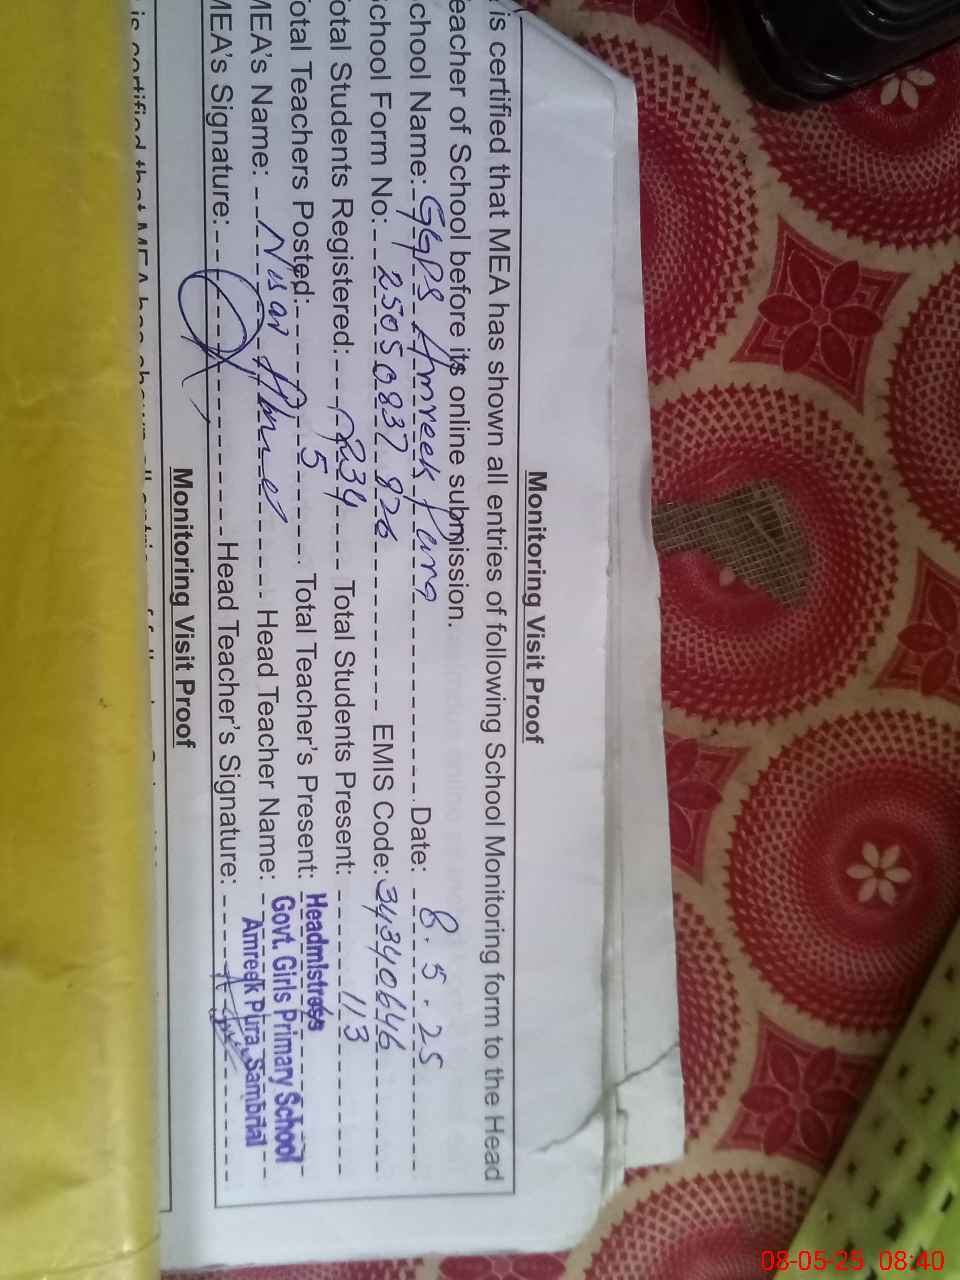 Monitoring Visit Proof
is certified that MEA has shown all entries of following School Monitoring form to the Head
eacher of School before its online submission.
chool Name: GGPS Amreek Pura Date: 8.5.25
chool Form No: 25050837826 EMIS Code: 34340646
otal Students Registered: 234 Total Students Present: 113
otal Teachers Posted: 5 Total Teacher's Present:
MEA's Name: Nisar Ahmed Head Teacher Name:
MEA's Signature: Head Teacher's Signature:
Headmistress
Govt. Girls Primary School
Amreek Pura, Sambrial
Monitoring Visit Proof
is certified that MEA has shown all entries of
08-05-25 08:40